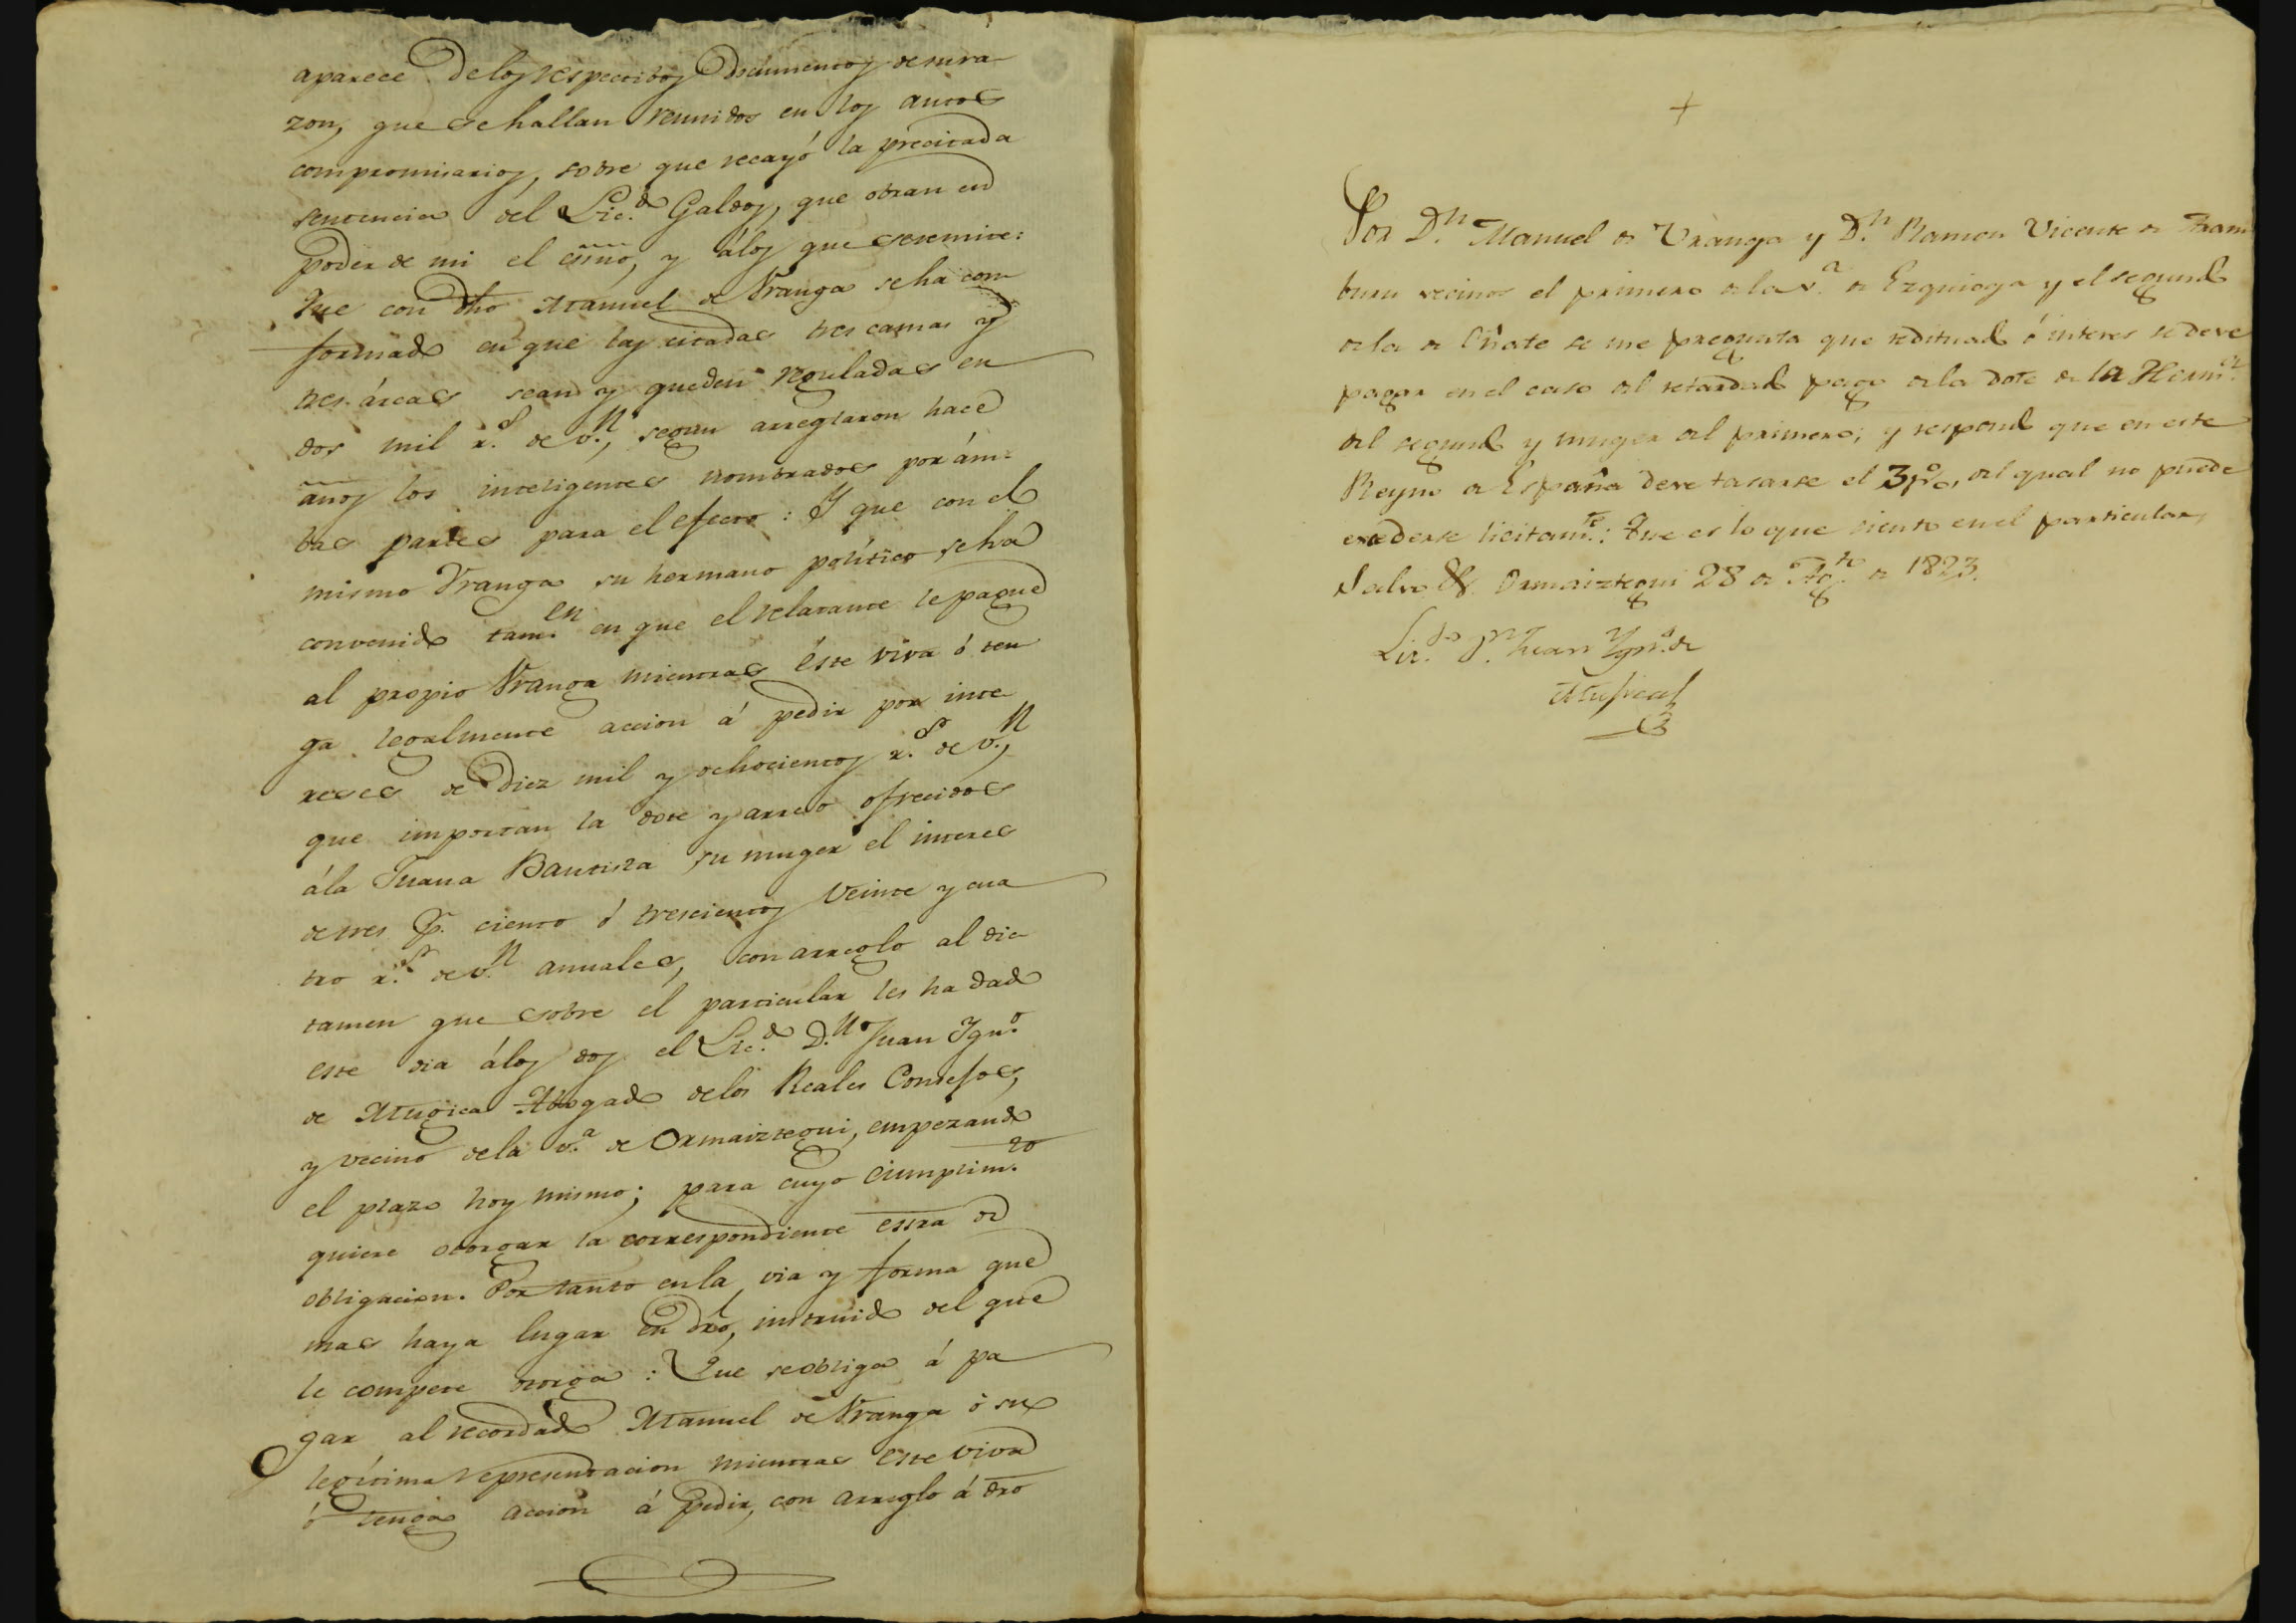 aparece delos respectivos Documentos de su ra
zon, que se hallan reunidos en los autos
compromisarios, sobre que recayó la precitada
sentencia del Lic.do Galdos, que obran en
poder de mi el essno, y álos que se remite:
Que con dho Manuel de Vranga se ha con
formado en que las citadas tres camas y
tres árcas sean y queden reguladas en
dos mil r.s de v.n, segun arreglaron hace
años los inteligentes nombrados por ám=
bas partes para el efecto: Y que con el
mismo Vranga su hermano político se ha
convenido tam.en en que el relatante le pague
al propio Vranga mientras éste viva ó ten
ga legalmente accion á pedir por inte
reses de diez mil y ochocientos r.s de v.n,
que importan la dote y arreo ofrecidos
ála Juana Bautista su muger el interes
de tres p.r ciento ó trescientos veinte y cua
tro r.s de v.n anuales, con arreglo al dic
tamen que sobre el particular les ha dado
este dia álos dos el Lic.do D.n Juan Ign.o
de Mugica Abogado delos Reales Consejos,
y vecino dela v.a de Ormaiztegui, empezando
el plazo hoy mismo; para cuyo cumplim.to
quiere otorgar la correspondiente essra de
obligacion. Por tanto en la via y forma que
mas haya lugar en dro, instruido del que
le compete otorga: Que se obliga á pa
gar al recordado Manuel de Vranga ó su
legítima representacion mientras este viva
ó tenga accion á pedir, con arreglo á dro
+
Por D.n Manuel de Vranga y D.n Ramon Vicente de
buru vecinos el primero de la v.a de Ezquioga y el segundo
de la de Oñate se me pregunta que reditual ó interes se deve
pagar en el caso del retardado pago de la dote de la Herm.na
del segundo y muger del primero; y respondo que en este
Reyno de España deve tasarse el 3 p%, del qual no puede
excederse licitam.te: Que es lo que siento en el particular,
Salvo &. Ormaiztegui 28 de Ag.to de 1823.
Lic.do D.n Juan Ygn.o de
Mujica